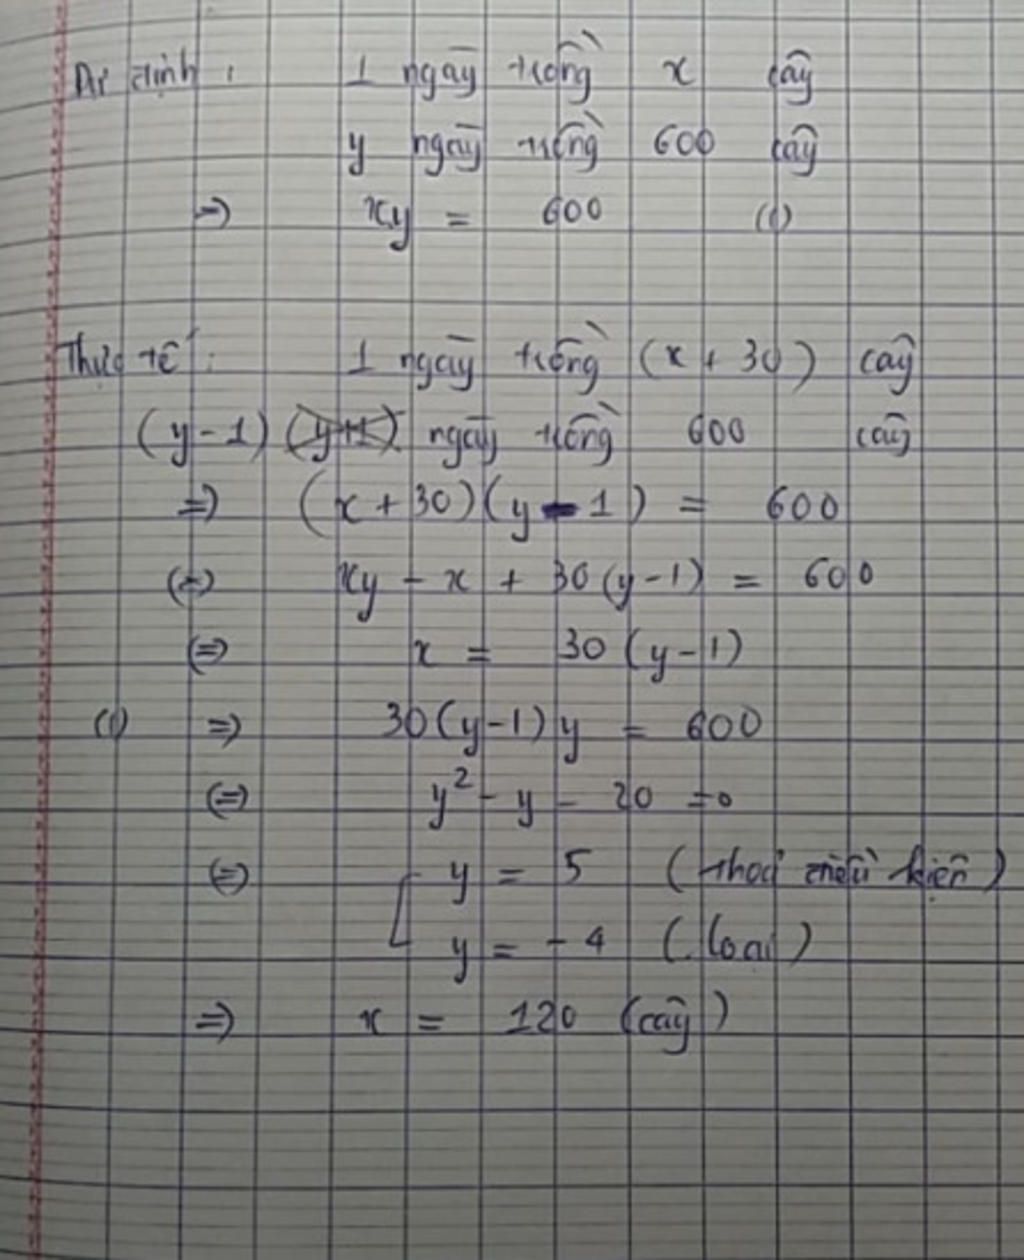 Dự định : 1 ngày trồng x cây
y ngày trồng 600 cây
=> xy = 600 (1)
Thực tế : 1 ngày trồng (x + 30) cây
(y - 1) (y+1) ngày trồng 600 cây
=> (x + 30)(y - 1) = 600
(=) xy - x + 30(y-1) = 600
(=) x = 30 (y-1)
(1) => 30(y-1) y = 600
(=) y² - y - 20 = 0
(=) y = 5 (thoả điều kiện)
y = -4 (loại)
=> x = 120 (cây)